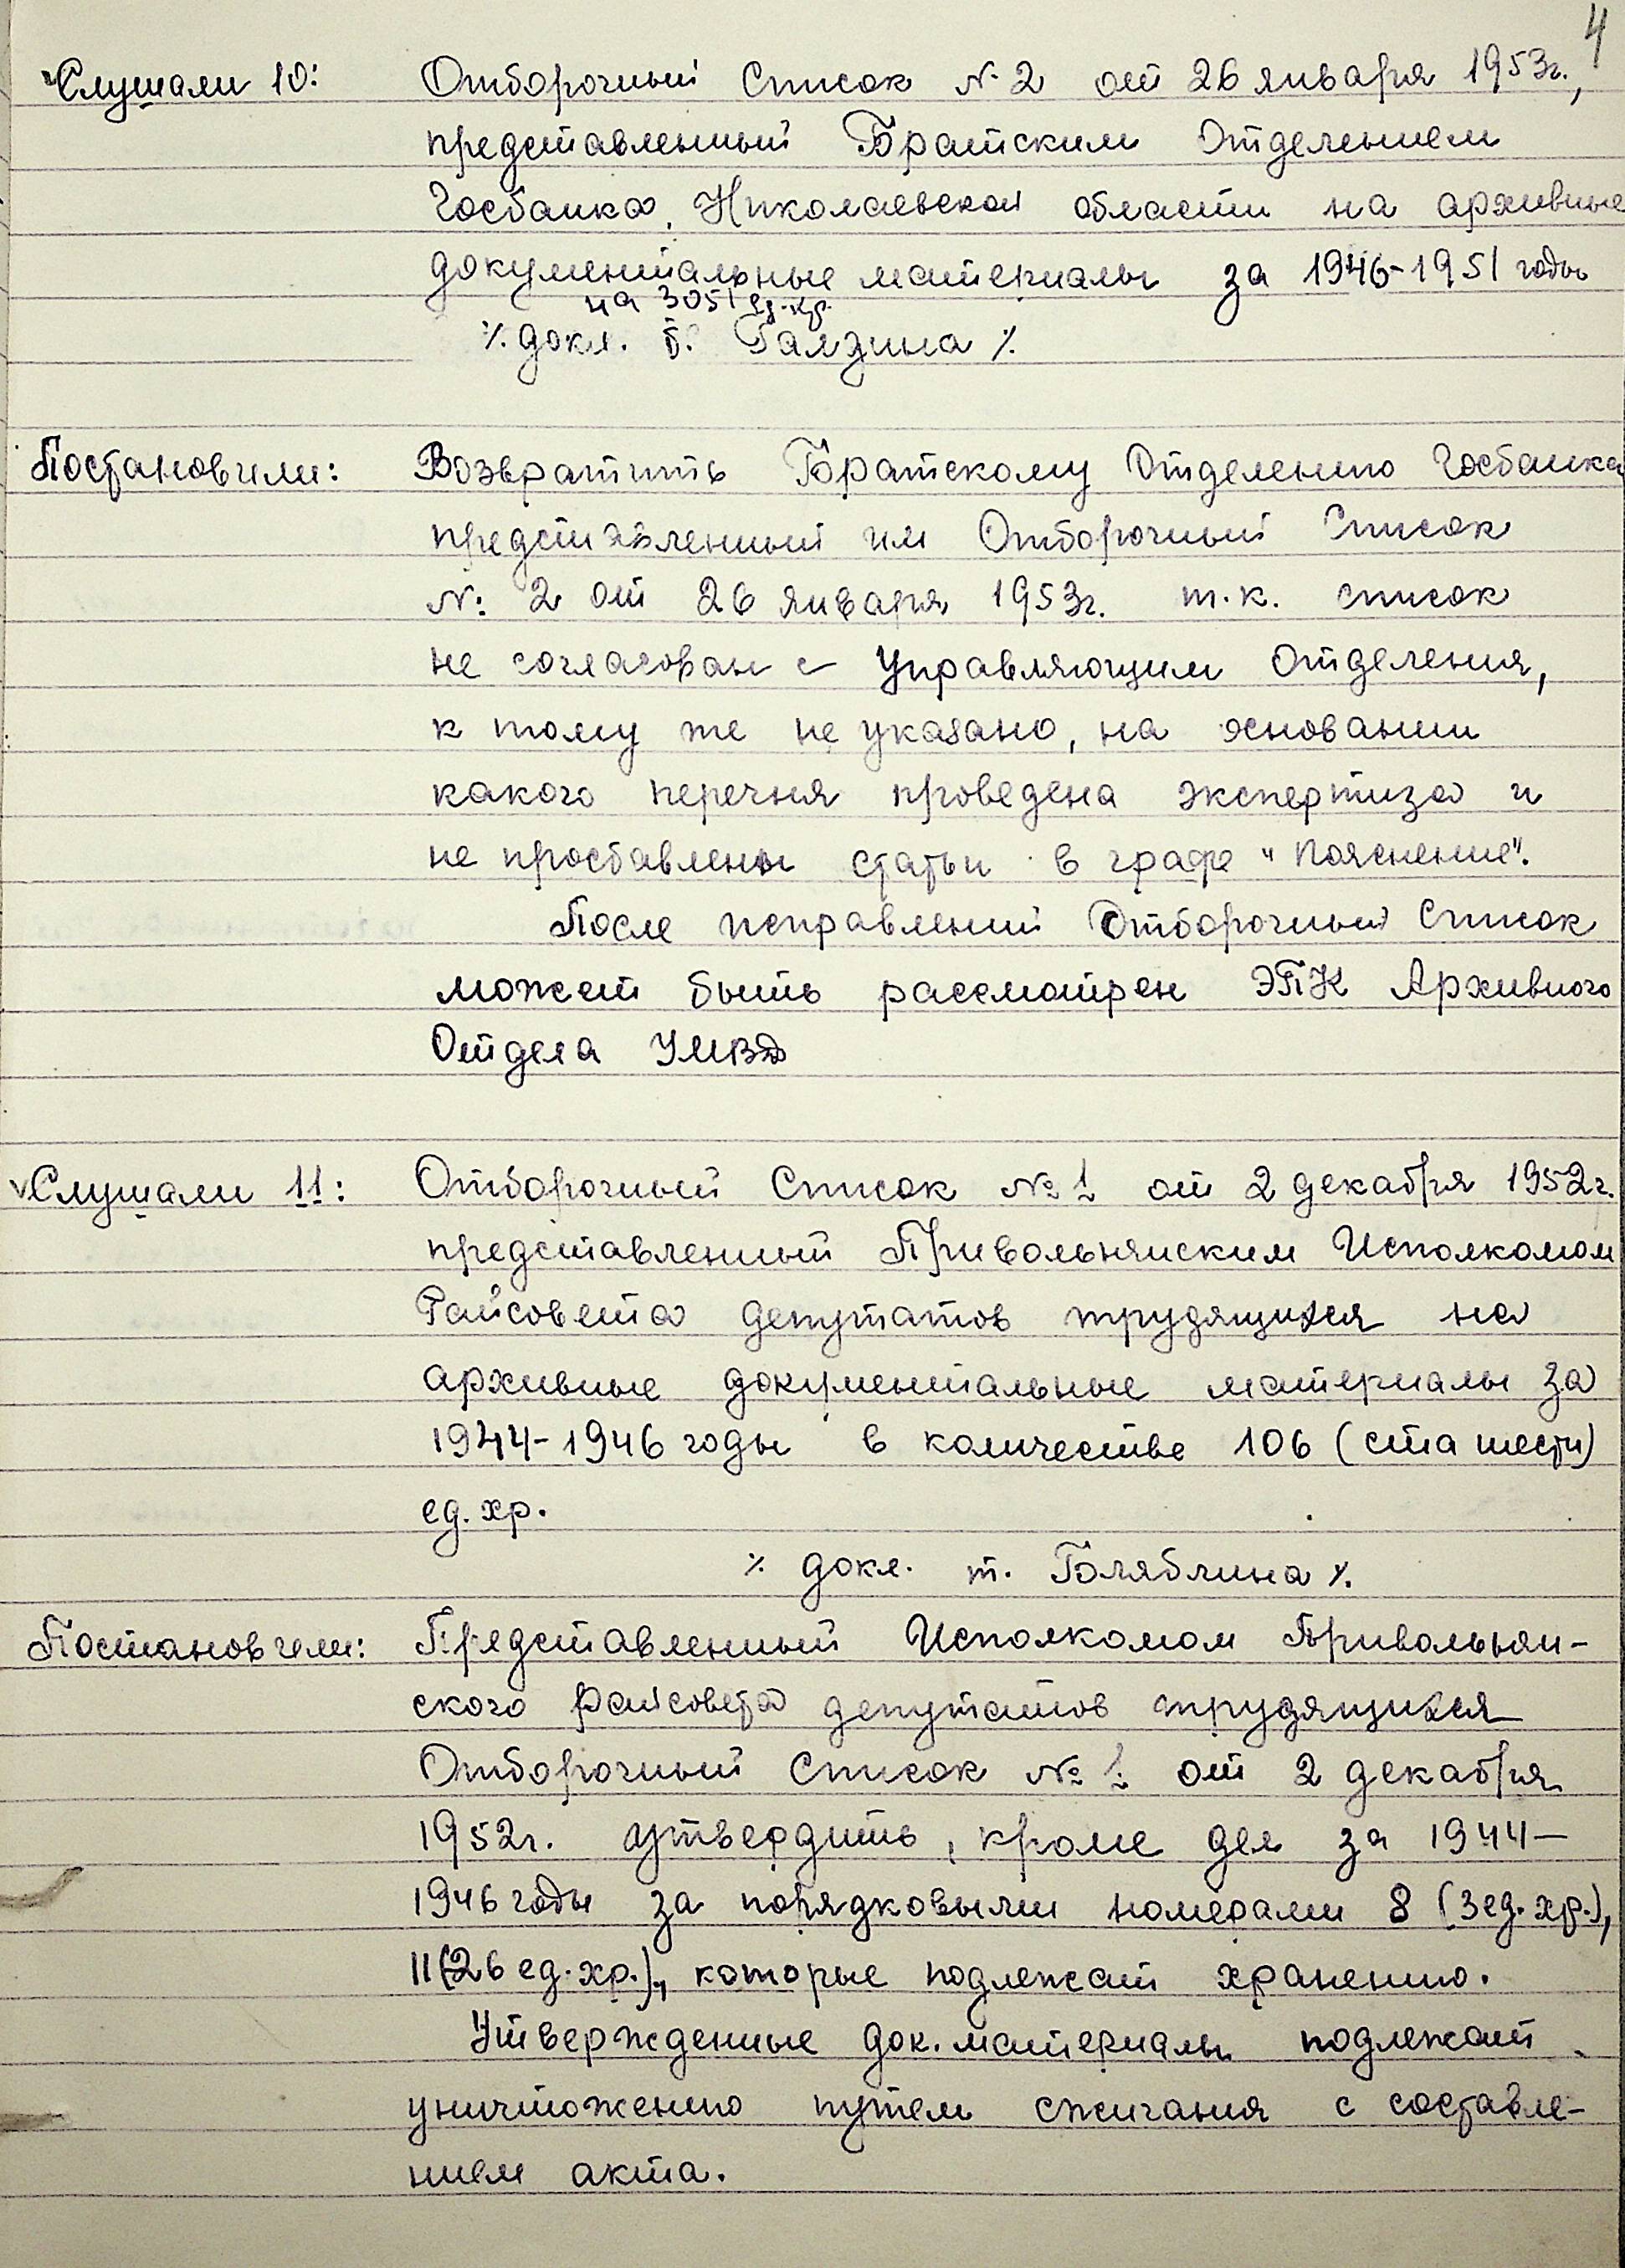 4
Слушали 10: Отборочный Список № 2 от 26 января 1953г.,
представленный Братским Отделением
Госбанка, Николаевской области на архивные
документальные материалы за 1946-1951 годы
на 3051 ед.хр.
% докл. т. %
Постановили: Возвратить Братскому Отделению Госбанка
представленный им Отборочный Список
№: 2 от 26 января 1953г. т.к. список
не согласован с Управляющим Отделения,
к тому же не указано, на основании
какого перечня проведена экспертиза и
не проставлены статьи в графе "Пояснение".
После исправлений Отборочный Список
может быть рассмотрен ЭПК Архивного
Отдела УМВД
Слушали 11: Отборочный Список № 1 от 2 декабря 1952г.
представленный Привольнянским Исполкомом
Райсовета депутатов трудящихся на
архивные документальные материалы за
1944-1946 годы в количестве 106 (ста шести)
ед. хр.
% докл. т. Боляблина %.
Постановили: Представленный Исполкомом Привольнян-
ского райсовета депутатов трудящихся
Отборочный Список № 1 от 2 декабря
1952г. утвердить, кроме дел за 1944-
1946 годы за порядковыми номерами 8 (3 ед. хр.),
11 (26 ед. хр.), которые подлежат хранению.
Утвержденные док. материалы подлежат
уничтожению путем сжигания с составле-
нием акта.